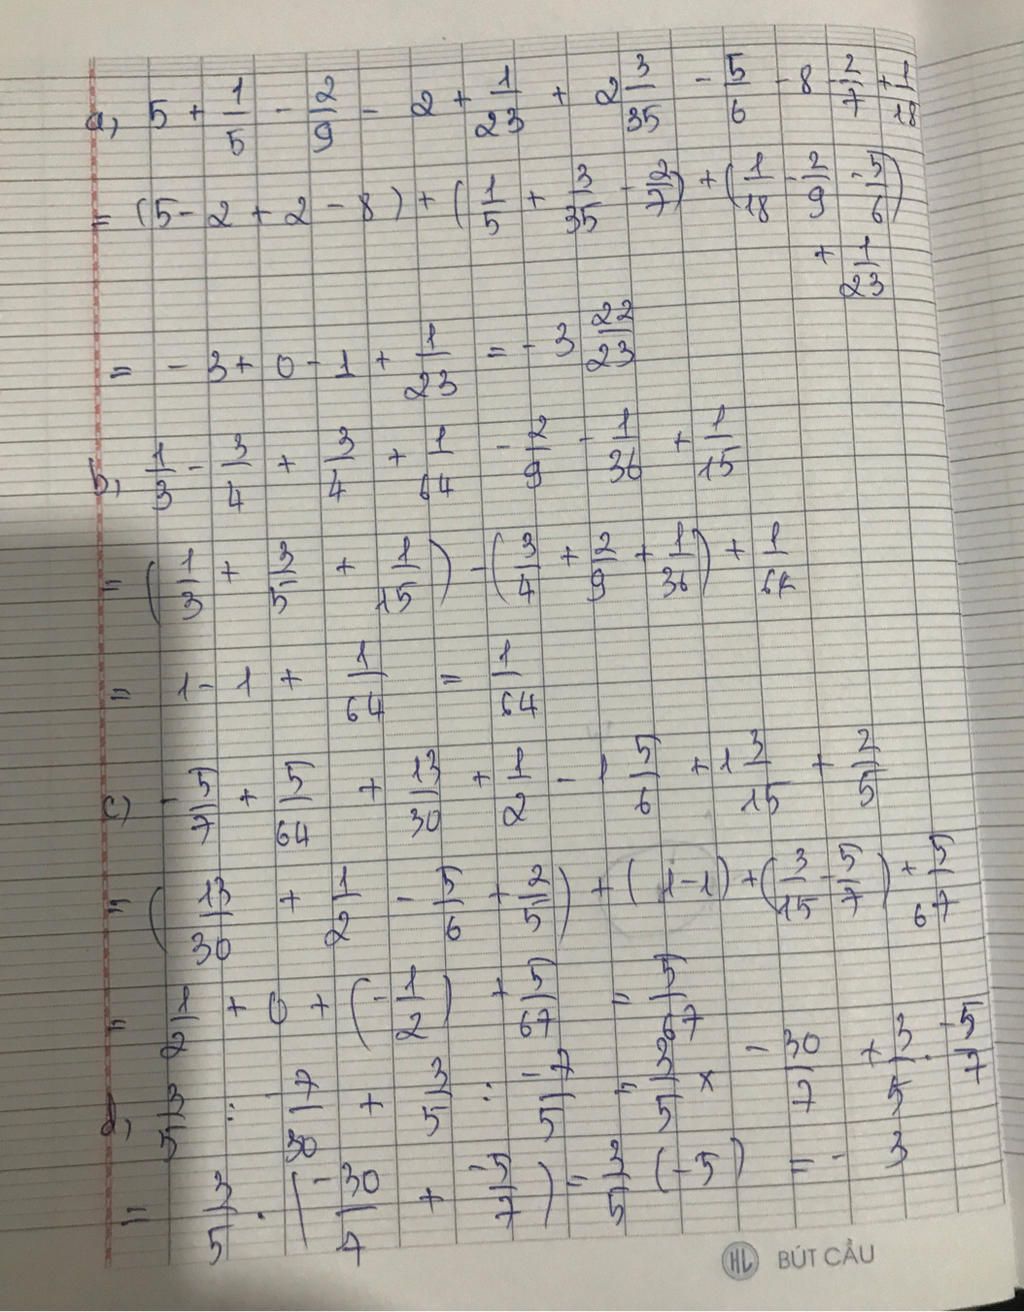 a, 5 + 1/5 - 2/9 - 2 + 1/23 + 2 3/35 - 5/6 - 8 - 2/7 + 1/18
= (5 - 2 + 2 - 8) + (1/5 + 3/35 - 2/7) + (1/18 - 2/9 - 5/6)
+ 1/23
= - 3 + 0 - 1 + 1/23 = - 3 22/23
b, 1/3 - 3/4 + 3/4 + 1/64 - 2/9 - 1/36 + 1/15
= (1/3 + 3/5 + 1/15) - (3/4 + 2/9 + 1/36) + 1/64
= 1 - 1 + 1/64 = 1/64
c) - 5/7 + 5/64 + 13/30 + 1/2 - 1 5/6 + 1 3/15 + 2/5
= (13/30 + 1/2 - 5/6 + 2/5) + (1 - 1) + (3/15 - 5/7) + 5/67
= 1/2 + 0 + (- 1/2) + 5/67 = 5/67
d, 3/5 : - 7/30 + 3/5 : -7/5 = 3/5 x - 30/7 + 3/5 . -5/7
= 3/5 . (-30/7 + -5/7) = 3/5 (-5) = - 3
HL BÚT CẦU